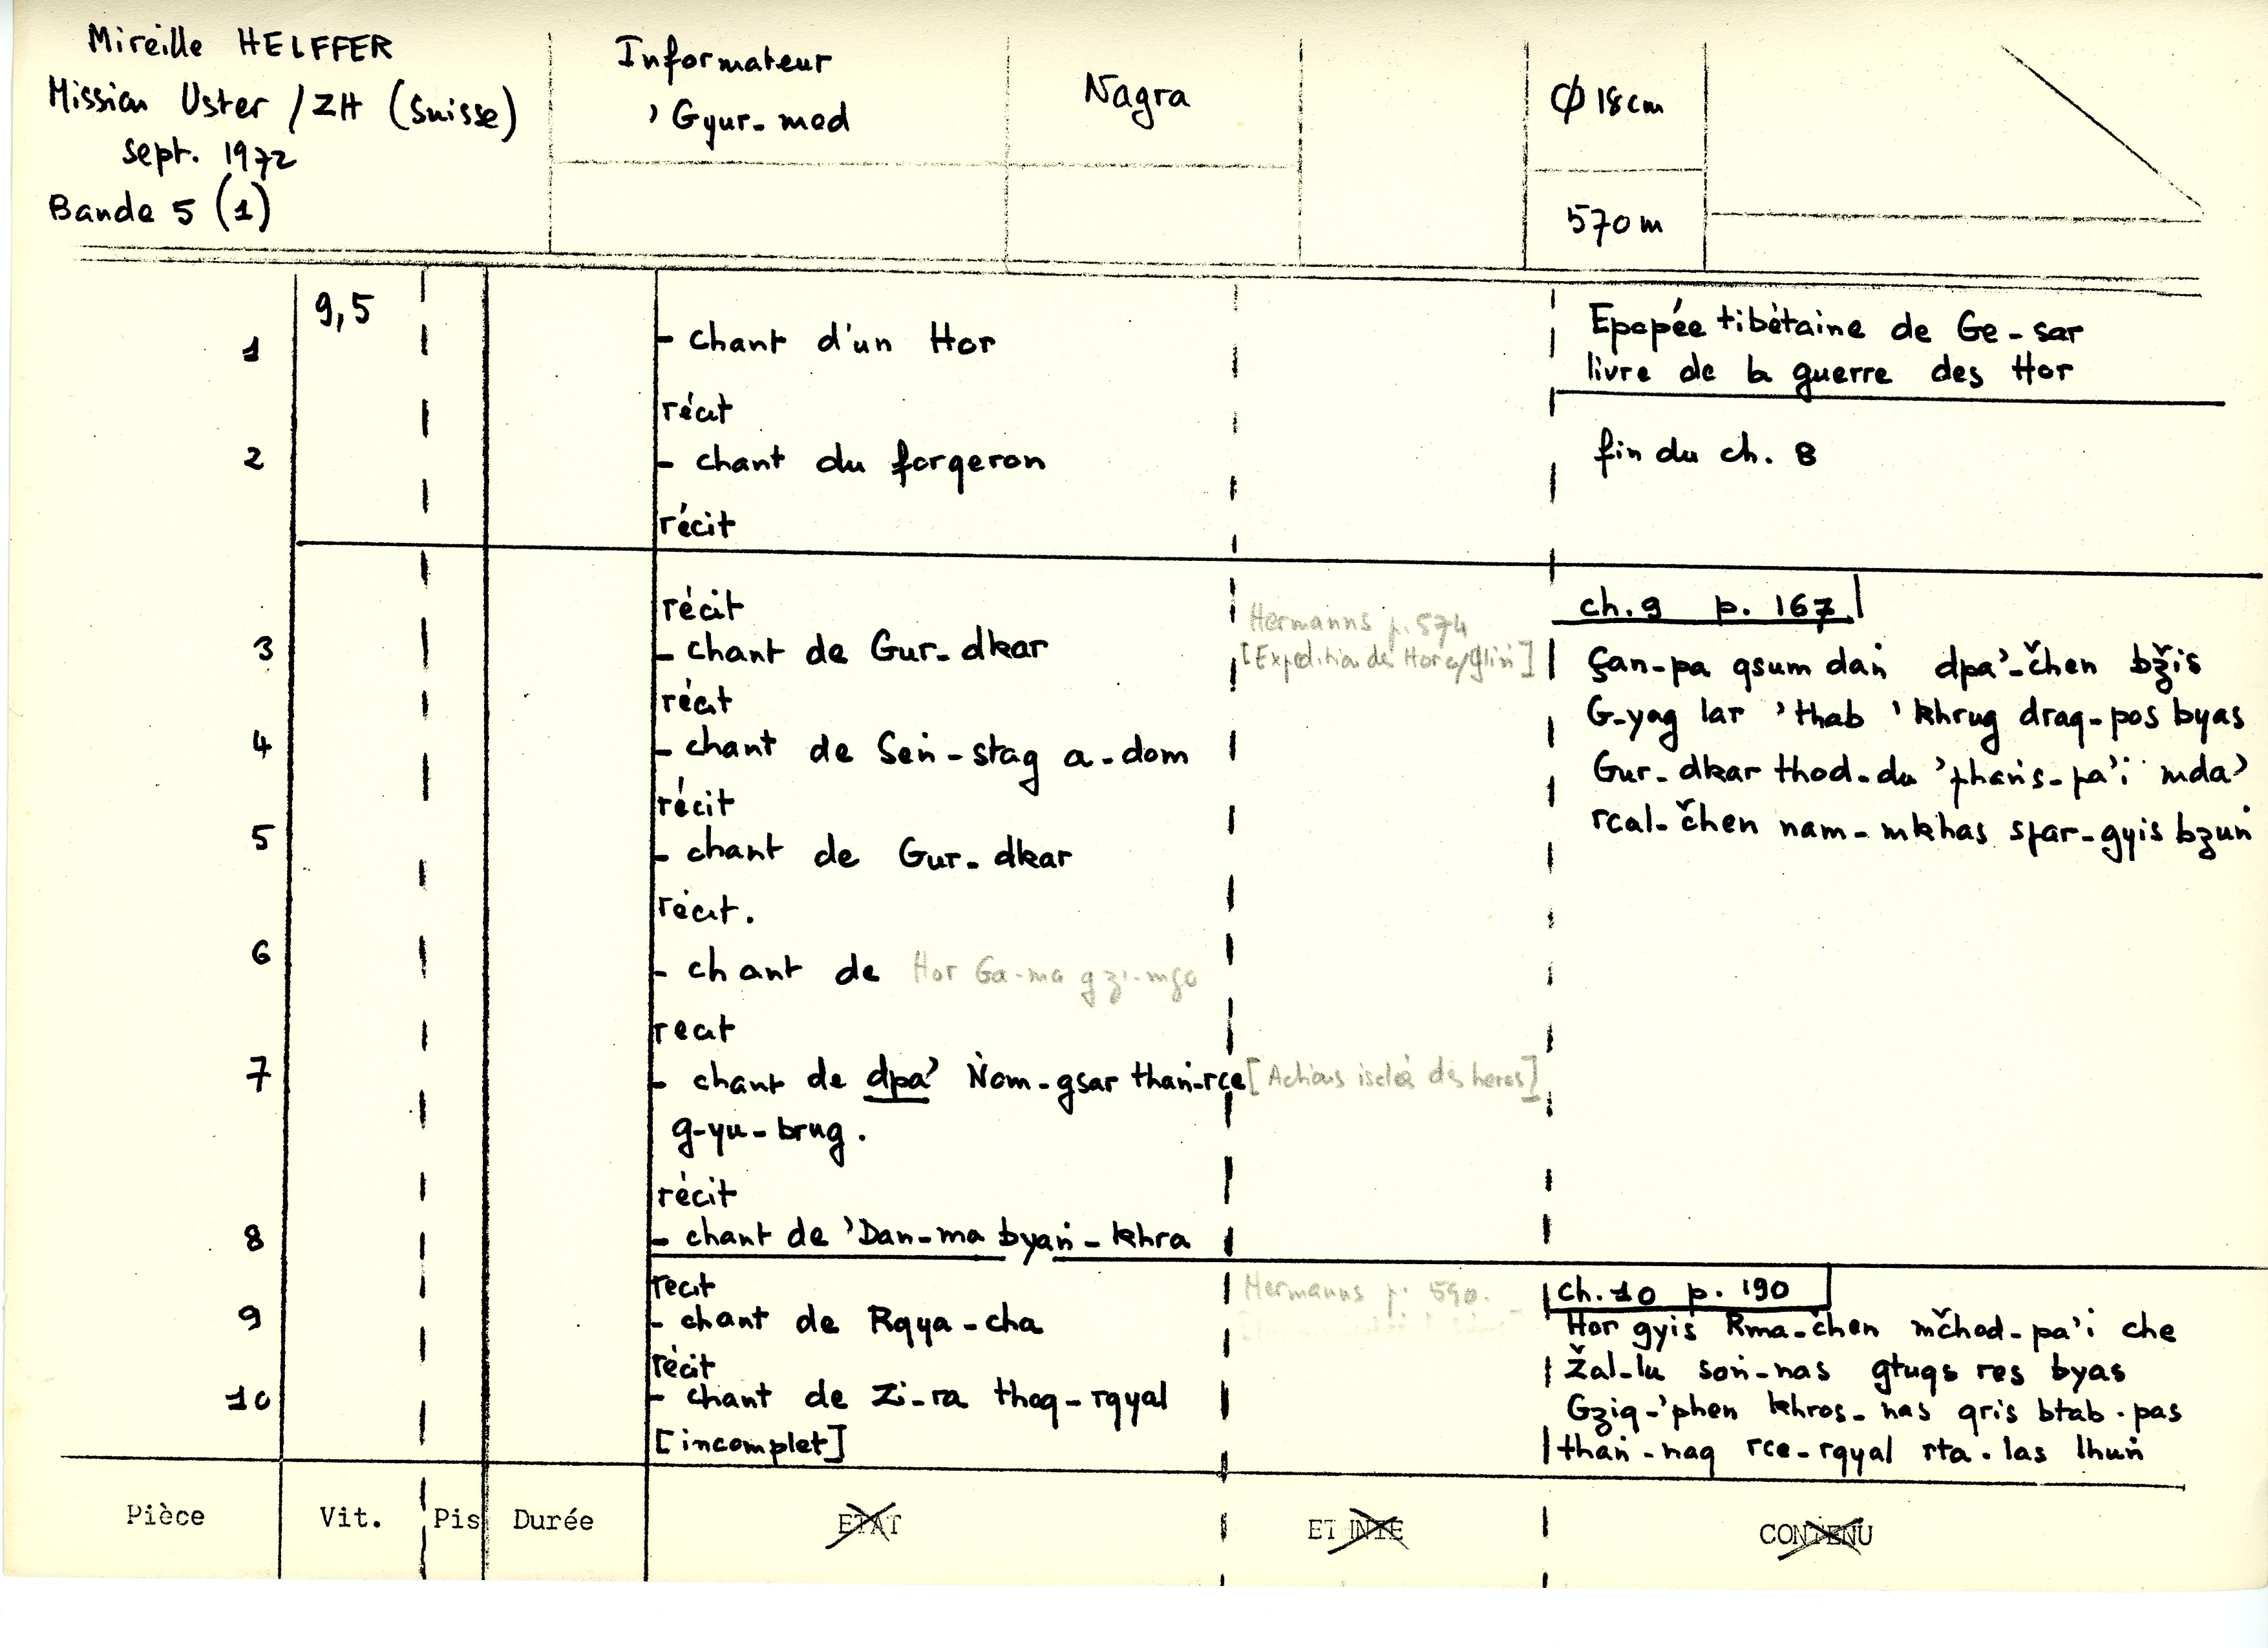 Mireille HELFFER
Mission Uster / ZH (Suisse)
sept. 1972
Bande 5 (1)
Informateur
'Gyur-med
Nagra
Ø 18cm
570 m
9,5
1
- chant d'un Hor
Epopée tibétaine de Ge-sar
livre de la guerre des Hor
récit
2
- chant du forgeron
fin du ch. 8
récit
récit
Hermanns p. 574
ch. 9 p. 167
3
- chant de Gur-dkar
[Expédition des Hor c/Gliṅ]
Çan-pa gsum daṅ dpa'-čhen bžis
récit
G-yag lar 'thab 'khrug drag-pos byas
4
- chant de Seṅ-stag a-dom
Gur-dkar thod-du 'phaṅs-pa'i mda'
récit
rcal-čhen nam-mkhas spar-gyis bzuṅ
5
- chant de Gur-dkar
récit.
6
- chant de Hor Ga-ma gzi-mgo
récit
7
- chant de dpa' Ṅom-gsar thaṅ-rce [Actions isolées des heros]
g-yu-brug.
récit
8
- chant de 'Dan-ma byaṅ-khra
récit
Hermanns p. 590.
ch. 10 p. 190
9
- chant de Rgya-cha
Hor gyis Rma-čhen mčhod-pa'i che
récit
Žal-lu soṅ-nas gtugs res byas
10
- chant de Zi-ra thog-rgyal
Gzig-'phen khros-nas gris btab-pas
[incomplet]
thaṅ-nag rce-rgyal rta-las lhuṅ
Pièce
Vit.
Pis
Durée
ETAT
ETHNIE
CONTENU